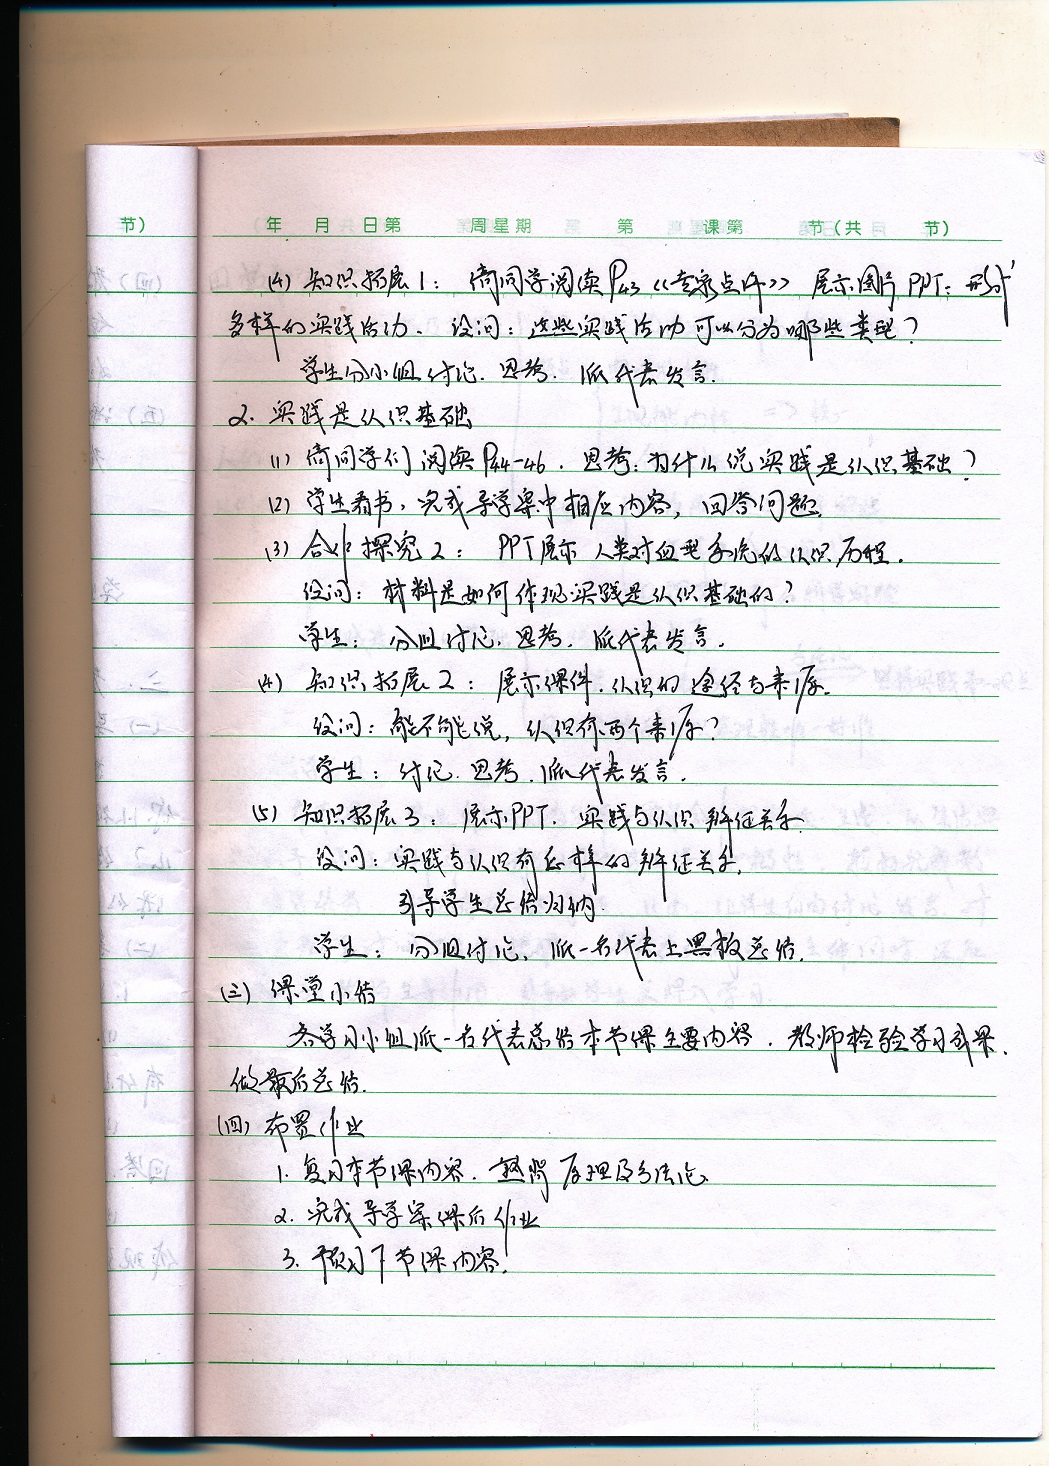 节)
年 月 日第 周星期 第 课第 节(共 节)
(4) 知识拓展1: 倚同学阅读P43《专家点评》 展示图片PPT: 形式
多样的实践活动. 设问: 这些实践活动可以分为哪些类型?
学生分小组讨论. 思考. 派代表发言.
2. 实践是认识基础
(1) 倚同学们阅读P44-46. 思考: 为什么说实践是认识基础?
(2) 学生看书, 完成导学案中相应内容, 回答问题.
(3) 合作探究2: PPT展示人类对血型系统的认识历程.
设问: 材料是如何体现实践是认识基础的?
学生: 分组讨论. 思考. 派代表发言.
(4) 知识拓展2: 展示课件. 认识的途径与来源.
设问: 能不能说, 认识有两个来源?
学生: 讨论. 思考. 派代表发言.
(5) 知识拓展3: 展示PPT. 实践与认识辨证关系.
设问: 实践与认识有怎样的辨证关系.
引导学生总结归纳.
学生: 分组讨论, 派一名代表上黑板总结.
(三) 课堂小结
各学习小组派一名代表总结本节课主要内容. 教师检验学习成果.
做最后总结.
(四) 布置作业
1. 复习本节课内容. 熟背原理及方法论.
2. 完成导学案课后作业
3. 预习下节课内容.